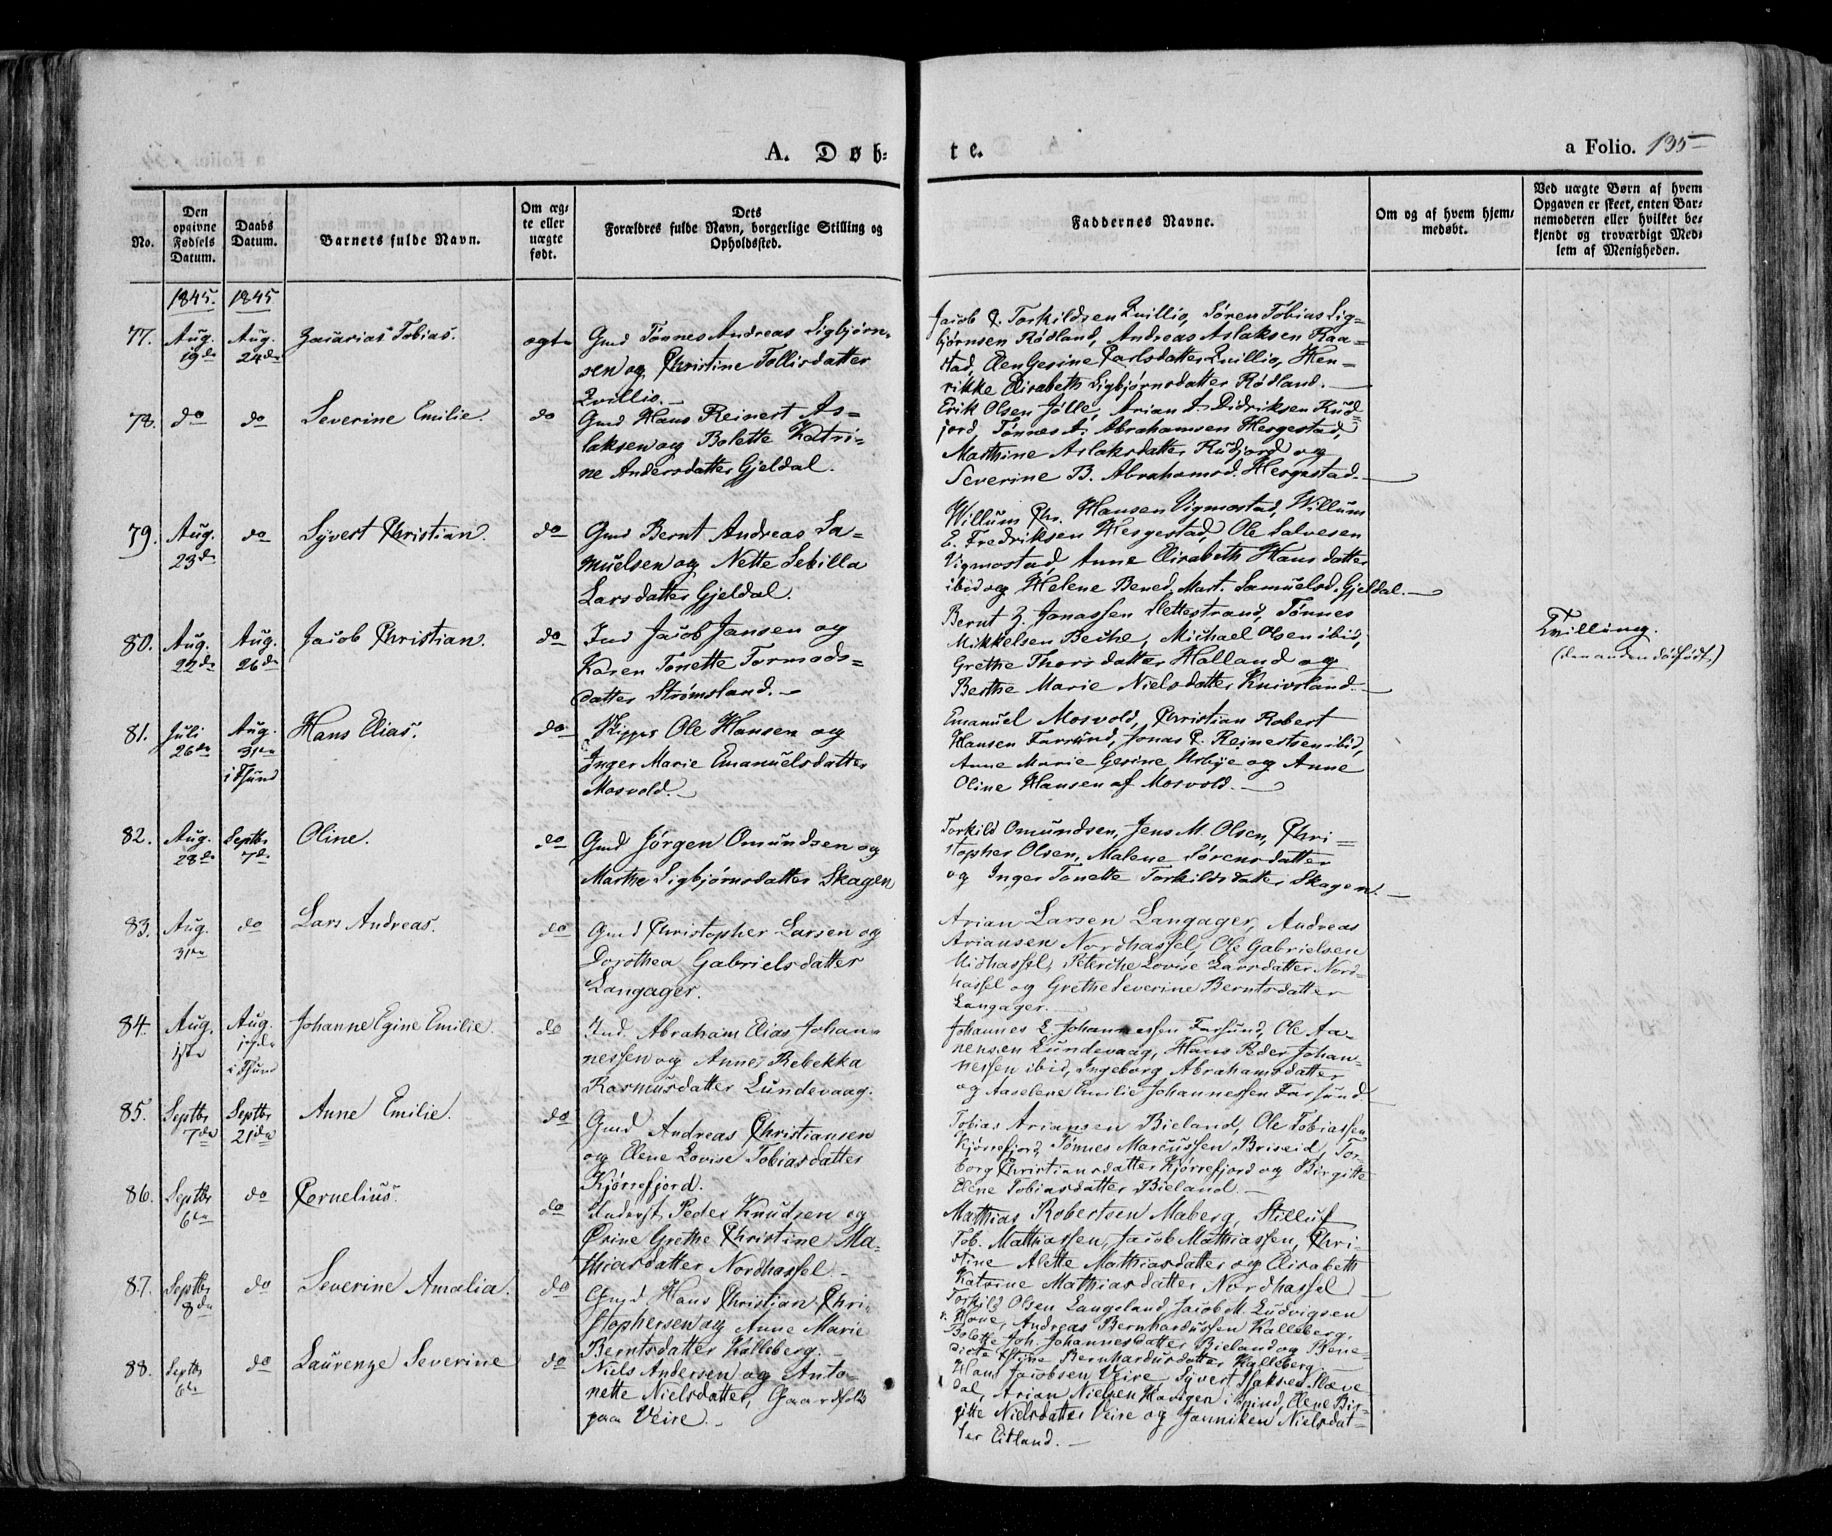 A. Døb-
te.
a Folio. 135
No.
Den opgivne Fødsels Datum.
Daabs Datum.
Barnets fulde Navn.
Om ægte eller uægte født.
Dets Forældres fulde Navn, borgerlige Stilling og Opholdssted.
Faddernes Navne.
Om og af hvem hjemmedøbt.
Ved uægte Børn af hvem Opgaven er skeet, enten Barnemoderen eller hvilket bekjendt og troværdigt Medlem af Menigheden.
1845. 1845
77. Aug. 19de Aug. 24de Zacarias Tobias. ægte
Gmd Tønnes Andreas Sigbjørn-
sen og Christine Tollisdatter
Qvillio.
Jacob C. Torkildsen Qvillio, Søren Tobias Sig-
bjørnsen Rødland, Andreas Aslaksen Raa-
stad, Elen Gesine Carlsdatter Qvillio, Hen-
rikke Elisabeth Sigbjørnsdatter Rødland.
78. do do Severine Emilie. do
Gmd Hans Reinert As-
laksen og Bolette Katri-
ne Andersdatter Gjeldal.
Erik Olsen Jølle, Arian A. Didriksen Rud-
jord, Tønnes A. Abrahamsen Hesgestad,
Marthine Aslaksdatter Rudjord og
Severine B. Abrahamsd. Hesgestad.
79. Aug. 23de do Syvert Christian. do
Gmd Bernt Andreas Sa-
muelsen og Nette Sebilla
Larsdatter Gjeldal.
Willum Chr. Hansen Vigmostad, Willum
E. Fredriksen Hesgestad, Ole Salvesen
Vigmostad, Anne Elisabeth Hansdatter
ibid og Helene Bened. Mart. Samuelsd. Gjeldal.
80. Aug. 22de Aug. 26de Jacob Christian. do
Ind Jacob Jansen og
Karen Tonette Tormods-
datter Strømsland.
Bernt Z. Jonassen Slettestrand, Tønnes
Mikkelsen Beche, Michael Olsen ibid,
Grethe Thorsdatter Holland og
Berthe Marie Nielsdatter Knivsland.
Tvilling.
(den anden dødfødt.)
81. Juli 26de Aug. 31te i Fsund Hans Elias. do
Skipper Ole Hansen og
Inger Marie Emanuelsdatter
Mosvold.
Emanuel Mosvold, Christian Robert
Hansen Farsund, Jonas C. Reinertsen ibid,
Anne Marie Gesine Urbye og Anne
Oline Hansen af Mosvold.
82. Aug. 28de Septbr 7de Oline. do
Gmd Jörgen Omundsen og
Marthe Sigbjørnsdatter Skagen
Torkild Omundsen, Jens M. Olsen, Chri-
stopher Olsen, Malene Sørensdatter
og Inger Tonette Torkildsdatter Skagen.
83. Aug. 31te do Lars Andreas. do
Gmd Christopher Larsen og
Dorothea Gabrielsdatter
Langager.
Arian Larsen Langager, Andreas
Ariansen Nordhassel, Ole Gabrielsen
Midhassel, Petersche Lovise Larsdatter Nord-
hassel og Grethe Severine Berntsdatter
Langager.
84. Aug. 1ste Aug. i Fsund Johanne Egine Emilie. do
Ind Abraham Elias Johan-
nessen og Anne Rebekka
Rasmusdatter Lundevaag.
Johannes E. Johannessen Farsund, Ole Aa-
nensen Lundevaag, Hans Peder Johan-
nessen ibid, Ingeborg Abrahamsdatter
og Aaselene Emilie Johannessen Farsund
85. Septbr 7de Septbr 21de Anne Emilie. do
Gmd Andreas Christiansen
og Elene Lovise Tobiasdatter
Kjørrefjord.
Tobias Ariansen Bieland, Ole Tobiassen
Kjørrefjord, Tønnes Marcussen Briseid, Tor-
borg Christiansdatter Kjørrefjord og Birgitte
Elene Tobiasdatter Bieland.
86. Septbr 6te do Cornelius. do
Inderst Peder Knudsen og
Ørine Grethe Christine Ma-
thiasdatter Nordhassel
Mathias Robertsen Maberg, Stilluf
Tob. Mathiassen, Jacob Mathiassen, Chri-
stine Alette Mathiasdatter og Elisabeth
Katrine Mathiasdatter Nordhassel
87. Septbr 8de do Severine Amalia. do
Gmd Hans Christian Chri-
stophersen og Anne Marie
Berntsdatter Kalleberg.
Torkild Olsen Langeland, Jacob M. Ludvigsen
v. Hove, Andreas Bernhardussen Kalleberg,
Bolette Joh. Johannesdatter Bieland og Bene-
dicte Stine Bernhardusdatter Kalleberg
88. Septbr 6te do Laurenze Severine do
Niels Andersen og Anto-
nette Nielsdatter, Gaardfolk
paa Veire.
Hans Jacobsen Veire, Syvert Isaksen Slæve-
dal, Arian Nielsen Haugen i Spind, Elene Bir-
gitte Nielsdatter Veire og Janniken Nielsdat-
ter Eitland.